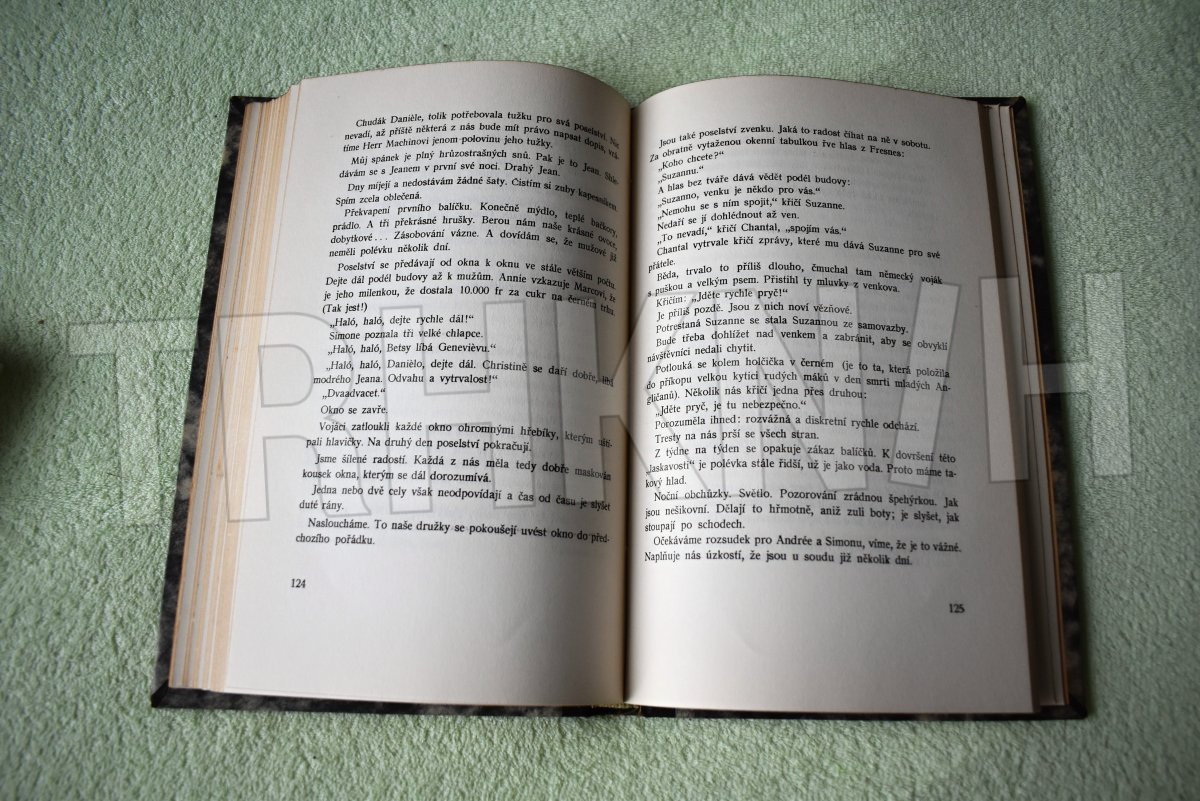 Chudák Danièle, tolik potřebovala tužku pro svá poselství. Nic
nevadí, až příště některá z nás bude mít právo napsat dopis, vrá-
tíme Herr Machinovi jenom polovinu jeho tužky.
Můj spánek je plný hrůzostrašných snů. Pak je to Jean. Shle-
dávám se s Jeanem v první své noci. Drahý Jean.
Dny míjejí a nedostávám žádné šaty. Čistím si zuby kapesníkem.
Spím zcela oblečená.
Překvapení prvního balíčku. Konečně mýdlo, teplé bačkory,
prádlo. A tři překrásné hrušky. Berou nám naše krásné ovoce,
dobytkové... Zásobování vázne. A dovídám se, že mužové již
neměli polévku několik dní.
Poselství se předávají od okna k oknu ve stále větším počtu.
Dejte dál podél budovy až k mužům. Annie vzkazuje Marcovi, že
je jeho milenkou, že dostala 10.000 fr za cukr na černém trhu.
(Tak jest!)
„Haló, haló, dejte rychle dál!“
Simone poznala tři velké chlapce.
„Haló, haló, Betsy líbá Genevièvu.“
„Haló, haló, Danièlo, dejte dál. Christině se daří dobře, líbá
modrého Jeana. Odvahu a vytrvalost!“
„Dvaadvacet.“
Okno se zavře.
Vojáci zatloukli každé okno ohromnými hřebíky, kterým uští-
pali hlavičky. Na druhý den poselství pokračují.
Jsme šílené radostí. Každá z nás měla tedy dobře maskován
kousek okna, kterým se dál dorozumívá.
Jedna nebo dvě cely však neodpovídají a čas od času je slyšet
duté rány.
Nasloucháme. To naše družky se pokoušejí uvést okno do před-
chozího pořádku.
124
Jsou také poselství zvenku. Jaká to radost číhat na ně v sobotu.
Za obratně vytaženou okenní tabulkou řve hlas z Fresnes:
„Koho chcete?“
„Suzannu.“
A hlas bez tváře dává vědět podél budovy:
„Suzanno, venku je někdo pro vás.“
„Nemohu se s ním spojit,“ křičí Suzanne.
Nedaří se jí dohlédnout až ven.
„To nevadí,“ křičí Chantal, „spojím vás.“
Chantal vytrvale křičí zprávy, které mu dává Suzanne pro své
přátele.
Běda, trvalo to příliš dlouho, čmuchal tam německý voják
s puškou a velkým psem. Přistihl ty mluvky z venkova.
Křičím: „Jděte rychle pryč!“
Je příliš pozdě. Jsou z nich noví vězňové.
Potrestaná Suzanne se stala Suzannou ze samovazby.
Bude třeba dohlížet nad venkem a zabránit, aby se obvyklí
návštěvníci nedali chytit.
Potlouká se kolem holčička v černém (je to ta, která položila
do příkopu velkou kytici rudých máků v den smrti mladých An-
gličanů). Několik nás křičí jedna přes druhou:
„Jděte pryč, je tu nebezpečno.“
Porozuměla ihned: rozvážná a diskretní rychle odchází.
Tresty na nás prší se všech stran.
Z týdne na týden se opakuje zákaz balíčků. K dovršení této
„laskavosti“ je polévka stále řidší, už je jako voda. Proto máme ta-
kový hlad.
Noční obchůzky. Světlo. Pozorování zrádnou špehýrkou. Jak
jsou nešikovní. Dělají to hřmotně, aniž zuli boty; je slyšet, jak
stoupají po schodech.
Očekáváme rozsudek pro Andrée a Simonu, víme, že je to vážné.
Naplňuje nás úzkostí, že jsou u soudu již několik dní.
125